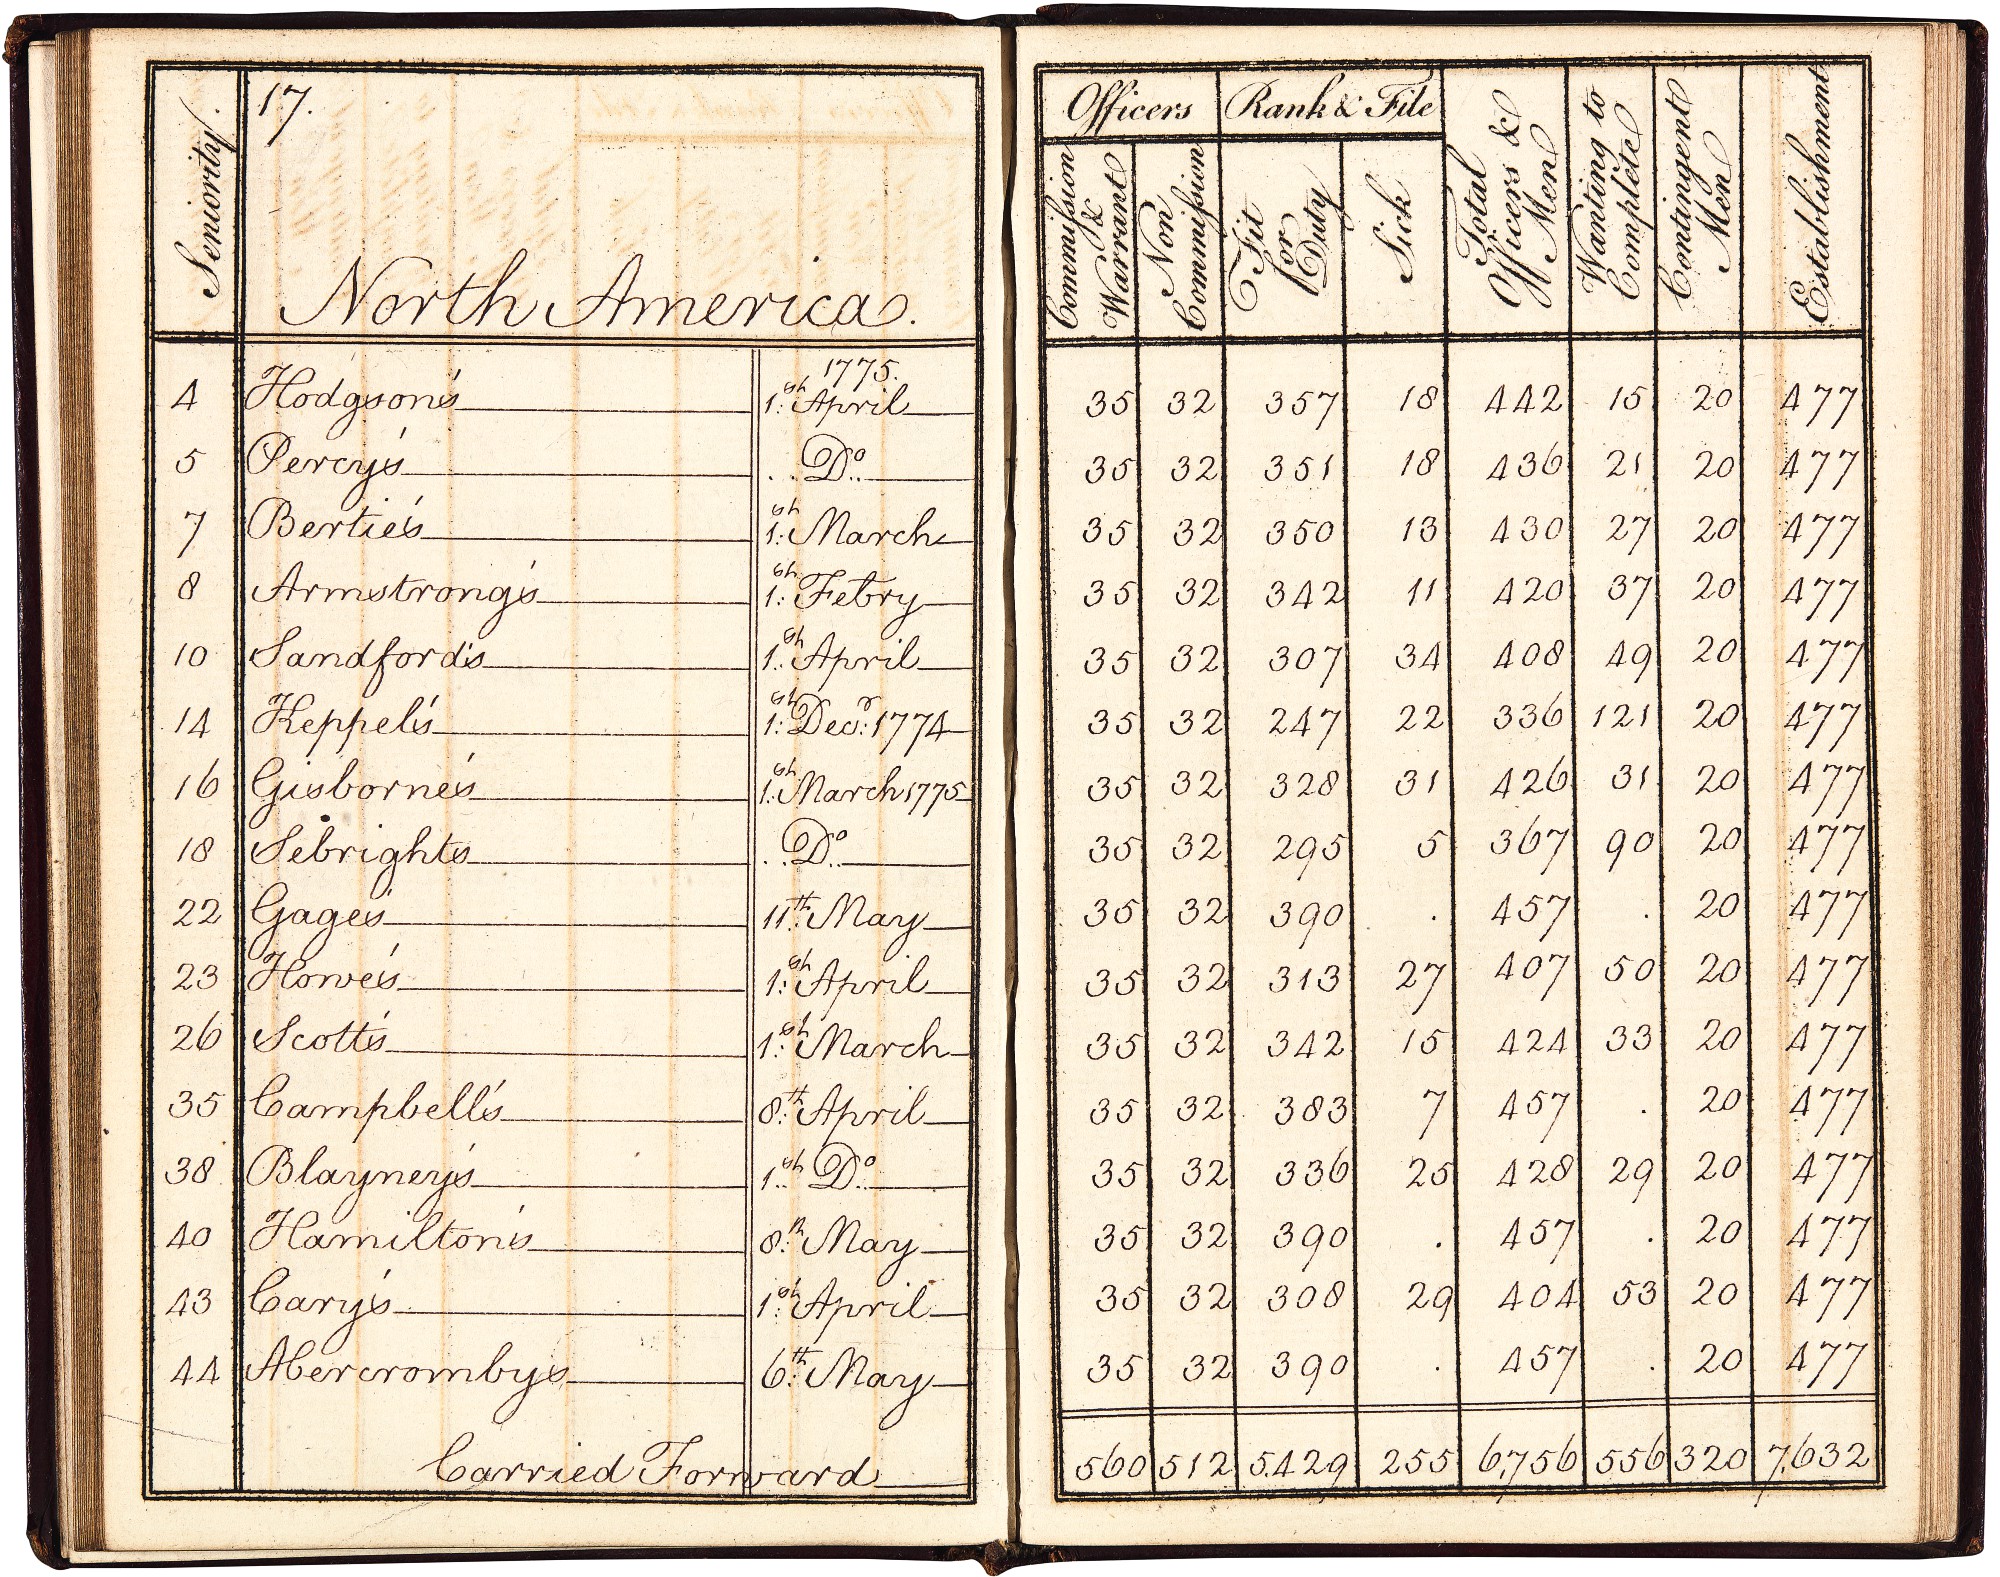 Seniority.
17.
North America.
Officers Rank & File
Commission & Warrant
Non Commission
Fit for Duty
Sick
Total Officers & Men
Wanting to Complete
Contingent Men
Establishment
1775.
4 Hodgson's 1st April 35 32 357 18 442 15 20 477
5 Percy's . . Do. 35 32 351 18 436 21 20 477
7 Bertie's 1st March 35 32 350 13 430 27 20 477
8 Armstrong's 1st Febry 35 32 342 11 420 37 20 477
10 Sandford's 1st April 35 32 307 34 408 49 20 477
14 Keppel's 1st Decr. 1774 35 32 247 22 336 121 20 477
16 Gisborne's 1st March 1775 35 32 328 31 426 31 20 477
18 Sebrights . . Do. 35 32 295 5 367 90 20 477
22 Gage's 11th May 35 32 390 . 457 . 20 477
23 Howe's 1st April 35 32 313 27 407 50 20 477
26 Scott's 1st March 35 32 342 15 424 33 20 477
35 Campbell's 8th April 35 32 383 7 457 . 20 477
38 Blayney's 1st Do. 35 32 336 25 428 29 20 477
40 Hamilton's 8th May 35 32 390 . 457 . 20 477
43 Cary's 1st April 35 32 308 29 404 53 20 477
44 Abercrombys 6th May 35 32 390 . 457 . 20 477
Carried Forward 560 512 5,429 255 6,756 556 320 7,632